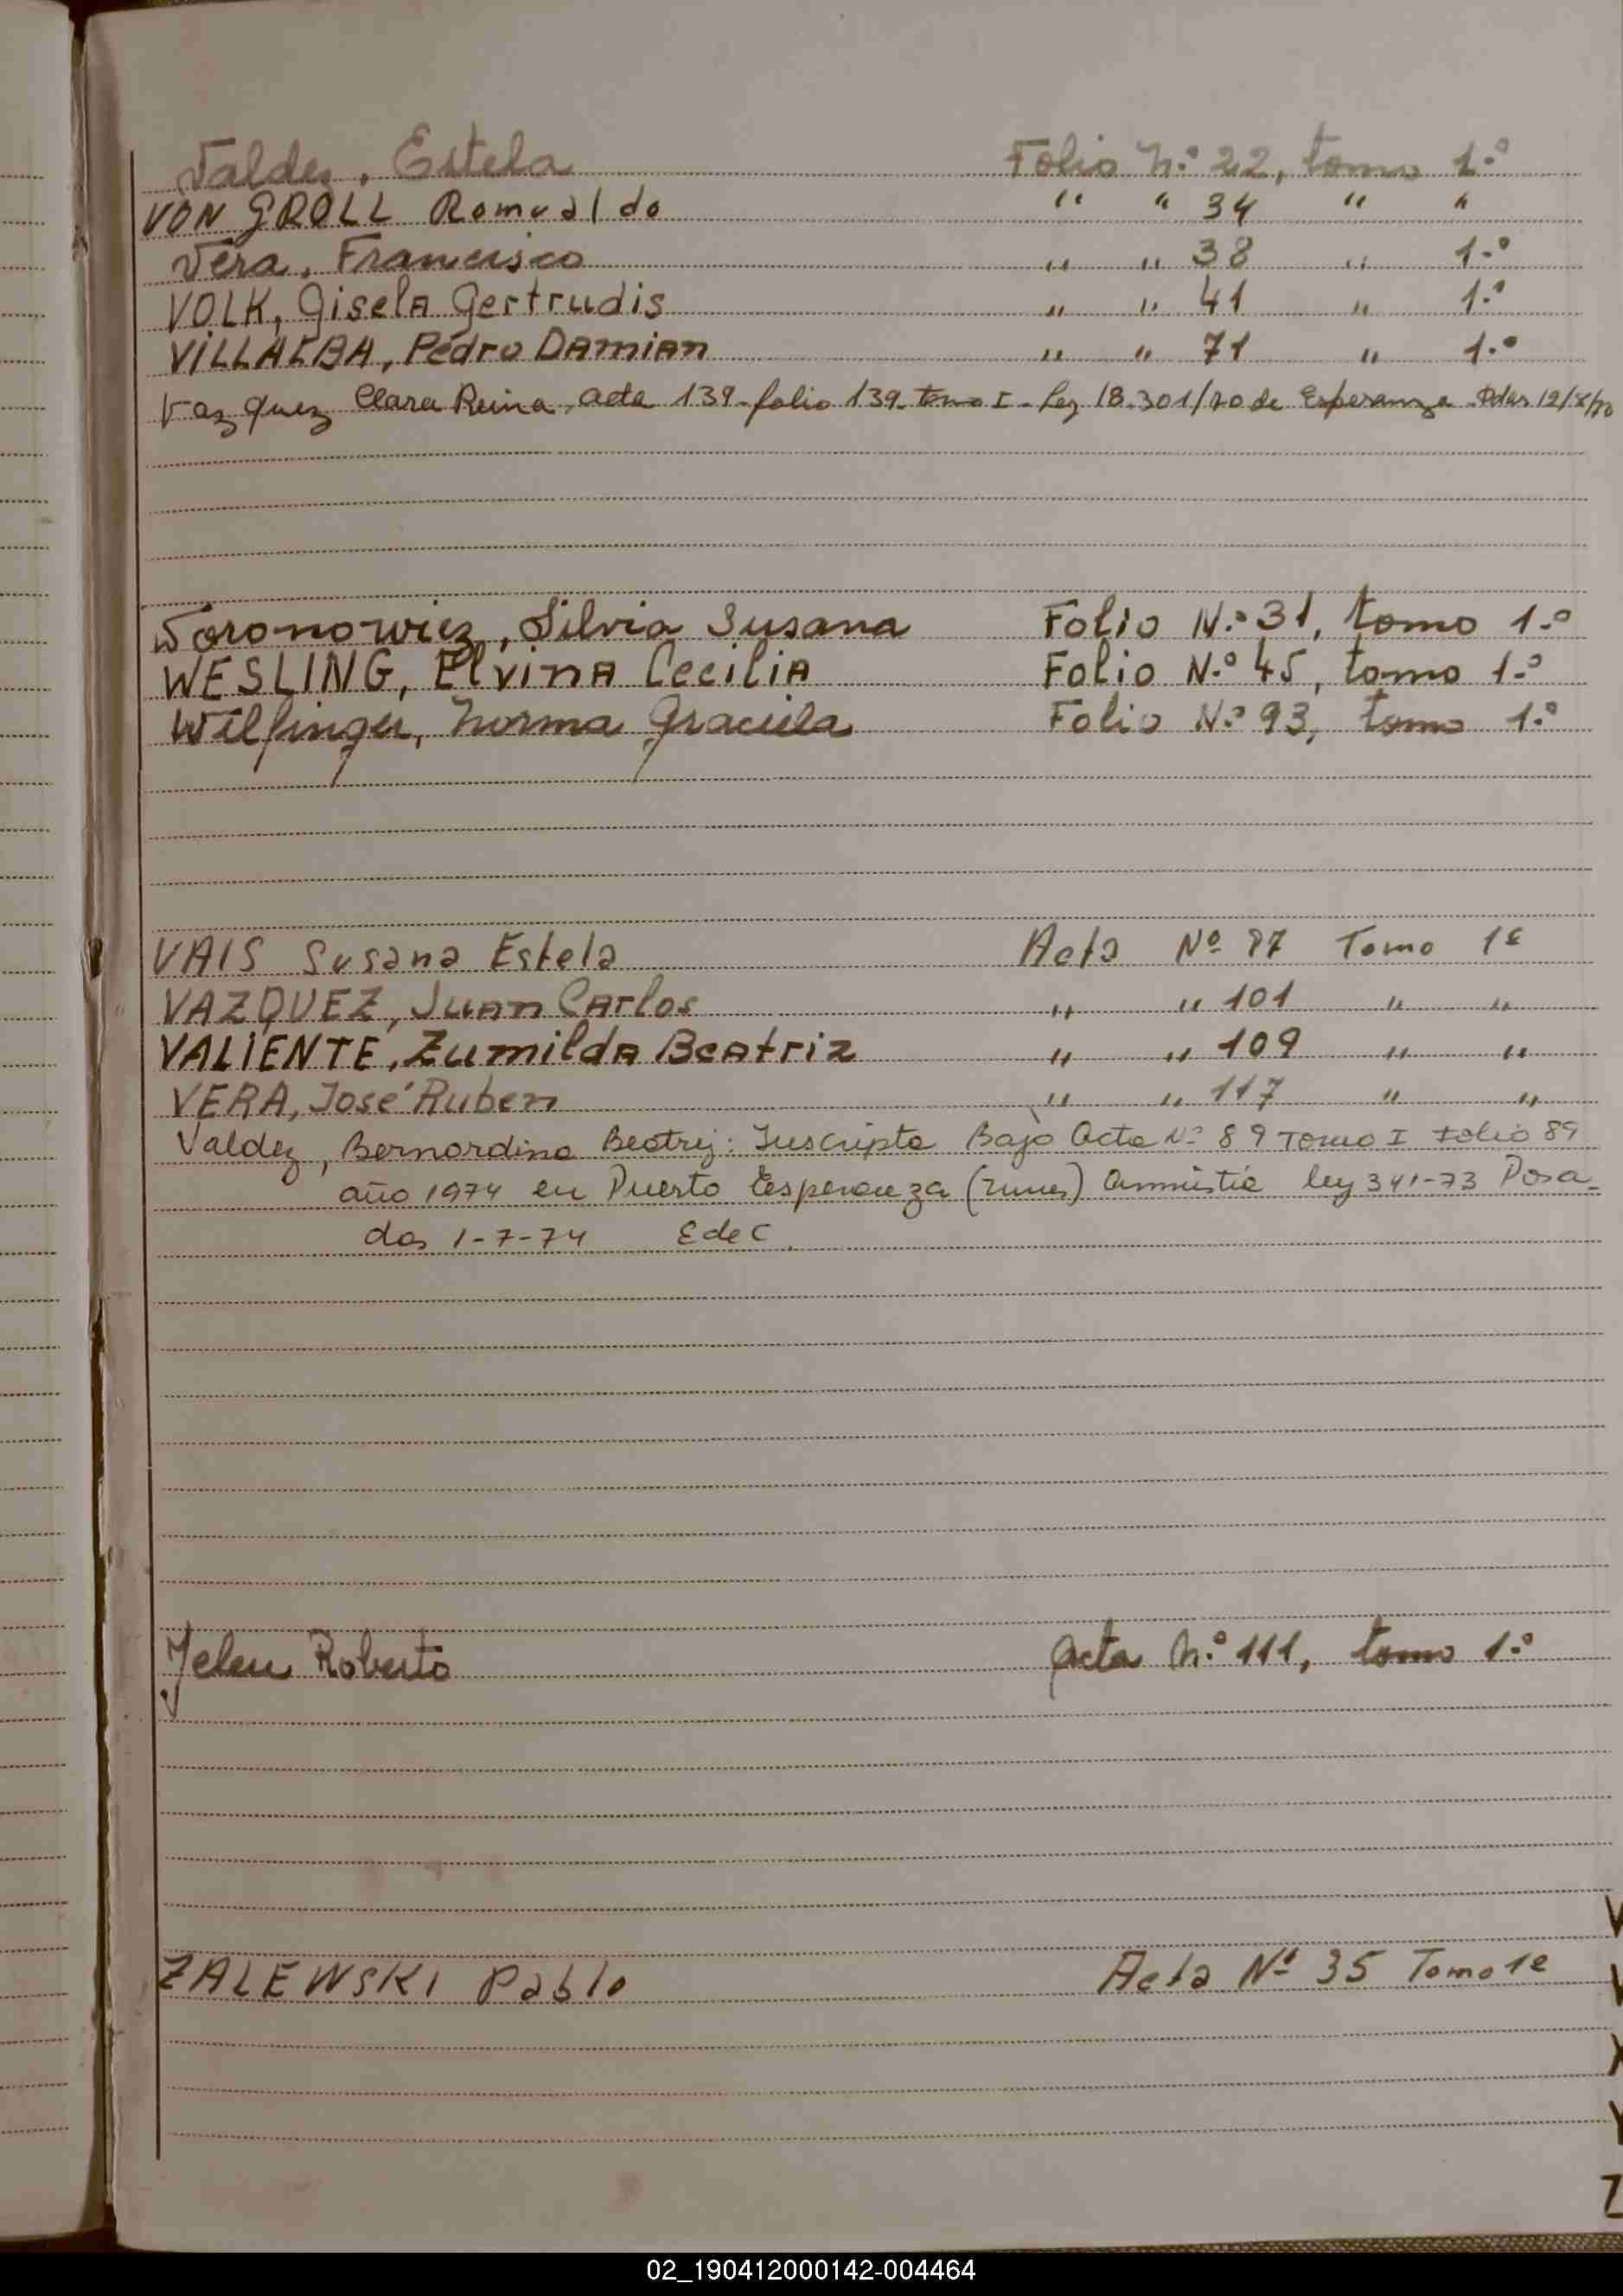 Valdez, Estela Folio N.º 22, tomo 1.º
VON GROLL Romualdo " " 34 " "
Vera, Francisco " " 38 " 1.º
VOLK, Gisela Gertrudis " " 41 " 1.º
VILLALBA, Pedro Damian " " 71 " 1.º
Vazquez Clara Reina, acta 139 - folio 139 - tomo I - Ley 18.301/70 de Esperanza - Pdas 12/X/70
Woronowicz, Silvia Susana Folio N.º 31, tomo 1.º
WESLING, Elvina Cecilia Folio N.º 45, tomo 1.º
Wilfinger, Norma Graciela Folio N.º 93, tomo 1.º
VAIS Susana Estela Acta Nº 87 Tomo 1º
VAZQUEZ, Juan Carlos " " 101 " "
VALIENTE, Zumilda Beatriz " " 109 " "
VERA, José Ruben " " 117 " "
Valdez, Bernardina Beatriz: Inscripta Bajo Acta Nº 89 Tomo I Folio 89
año 1974 en Puerto Esperanza (Mnes) Amnistia ley 341-73 Posa-
das 1-7-74 E de C.
Yelen Roberto Acta N.º 111, tomo 1.º
ZALEWSKI Pablo Acta Nº 35 Tomo 1º
V
X
Y
Z
02_190412000142-004464